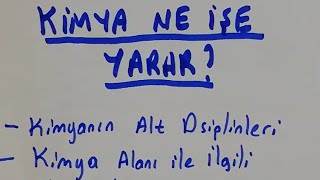 KİMYA NE İŞE
YARAR?
- Kimyanın Alt Dsiplinleri
- Kimya Alanı ile İlgili